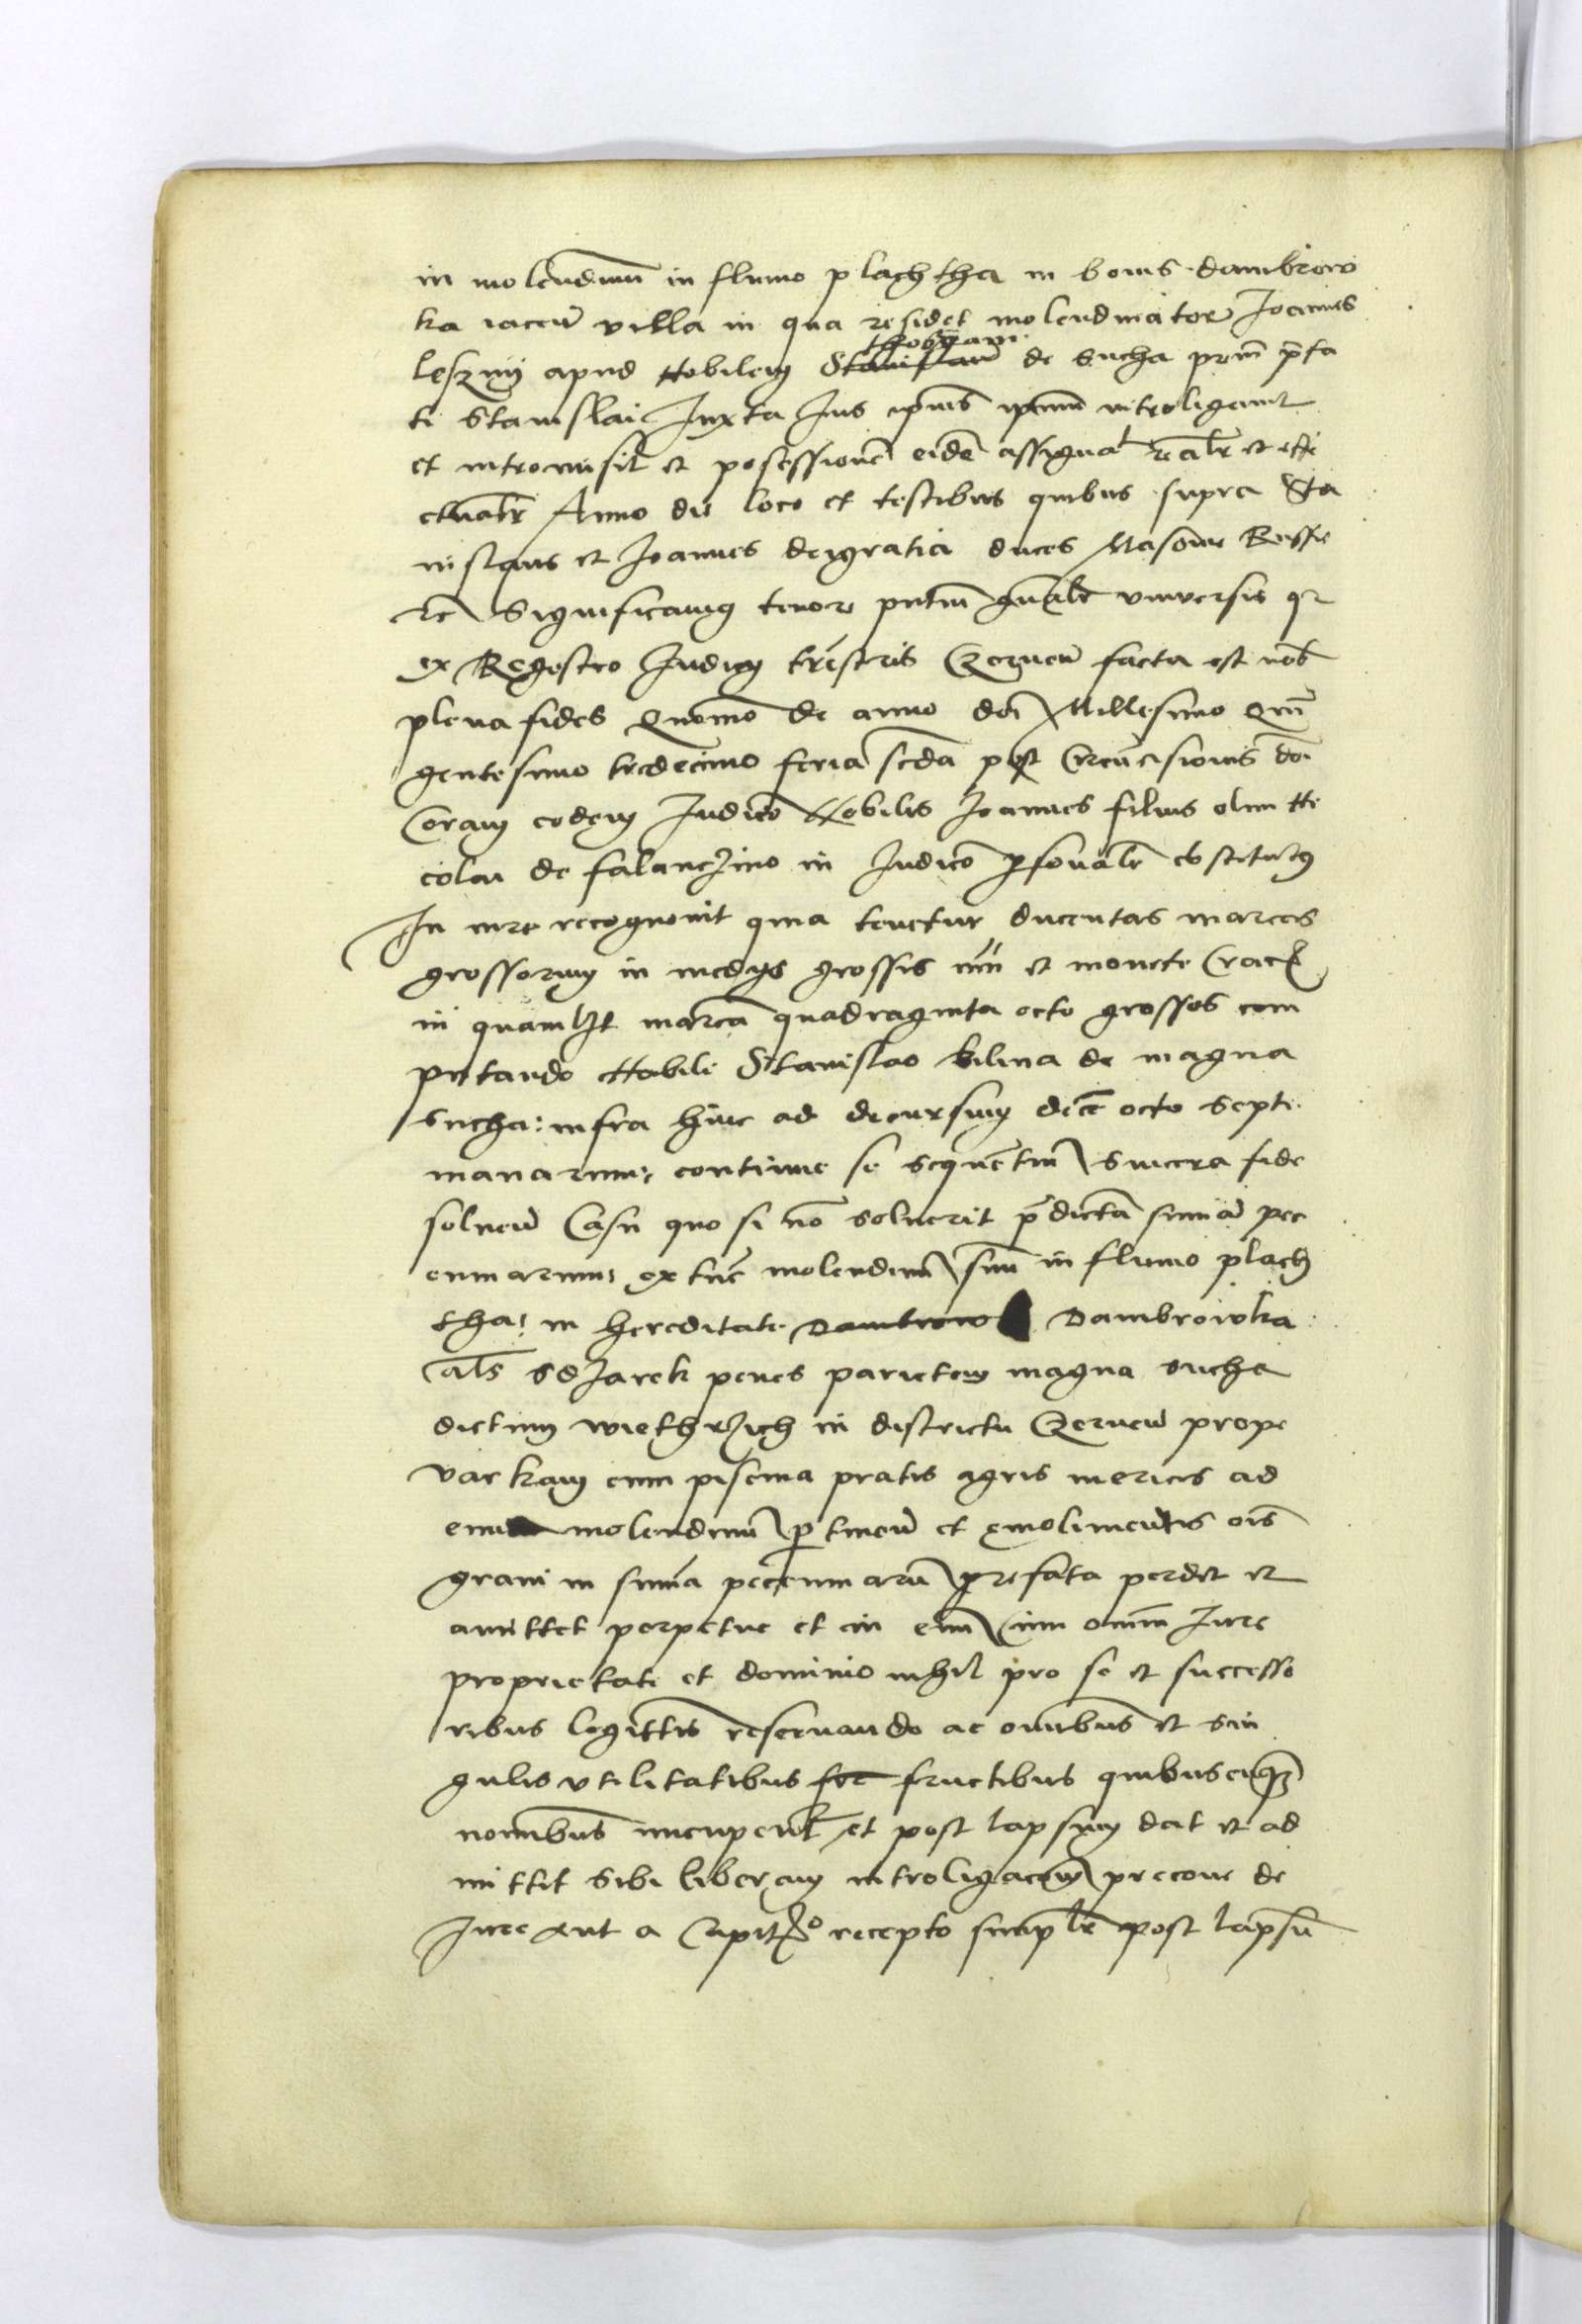 in molendinū in fluvio plachtha in bonis dambrow
ka iaceñ villa in qua residet molendinator Joannes
leszny apud Nobilem Stanislaū thobyam de Sucha prēm p̄fa
ti Stanislai Juxta Jus introligavit
et intromisit et posessionē eidē assignat reālr et effe
ctualr Anno die loco et testibus quibus supra Sta
nislaus et Joannes deigratia duces Masovie Russie
etc Significamus tenore pn̄tiū gn̄alr universis qr
ex Regestro Judicy trēstris Czerneñ facta est nob̄
plena fides Quomō de anno dnī Millesimo Quī
gentesimo tredecimo feria scda post Circūcisionis doī
Coram eodem Judicio Nobilis Joannes filius olim Ni
colai de falanczino in Judicō psonalr cōstitutus
In iure recognovit quia tenetur ducentas marcas
grossorum in medys grossis et monete Crac
in quamlzt marcā quadraginta octo grossos com
putando Nobili Stanislao bilina de magna
Sucha: infra hinc ad decursum decē octo septi
manarum: continue se sequētiū sincera fide
solveñ Casu quo si nō solverit p̄dictā sum̄ā pec
cuniarum: extūc molendinū suū in fluvio plach
tha: in hereditate Dambrow Dambrowka
als̄ sdzarek penes parietem magna sucha
dictum wiethrzich in districtu Czerneñ prope
varkam cum piscina pratis agris mericis ad
eum molendinū ptineñ et emolimentis oīs
grani in sum̄a peccuniarū prefata perdet et
amittet perpetue et in eum cum omni Jure
proprietate et dominio nihil pro se et successo
ribus legittis reservando ac omnibus et sin
gulis utilitatibus fec fructibus quibuscūqz
nominibus nucupent et post lapsum dat et ad
mittit sibi liberam introligacōem precone de
Jure aut a Capit̄o recepto simplr post lapsū